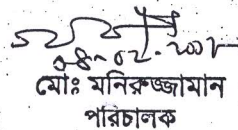 মোঃ মনিরুজ্জামান
পারিচালক